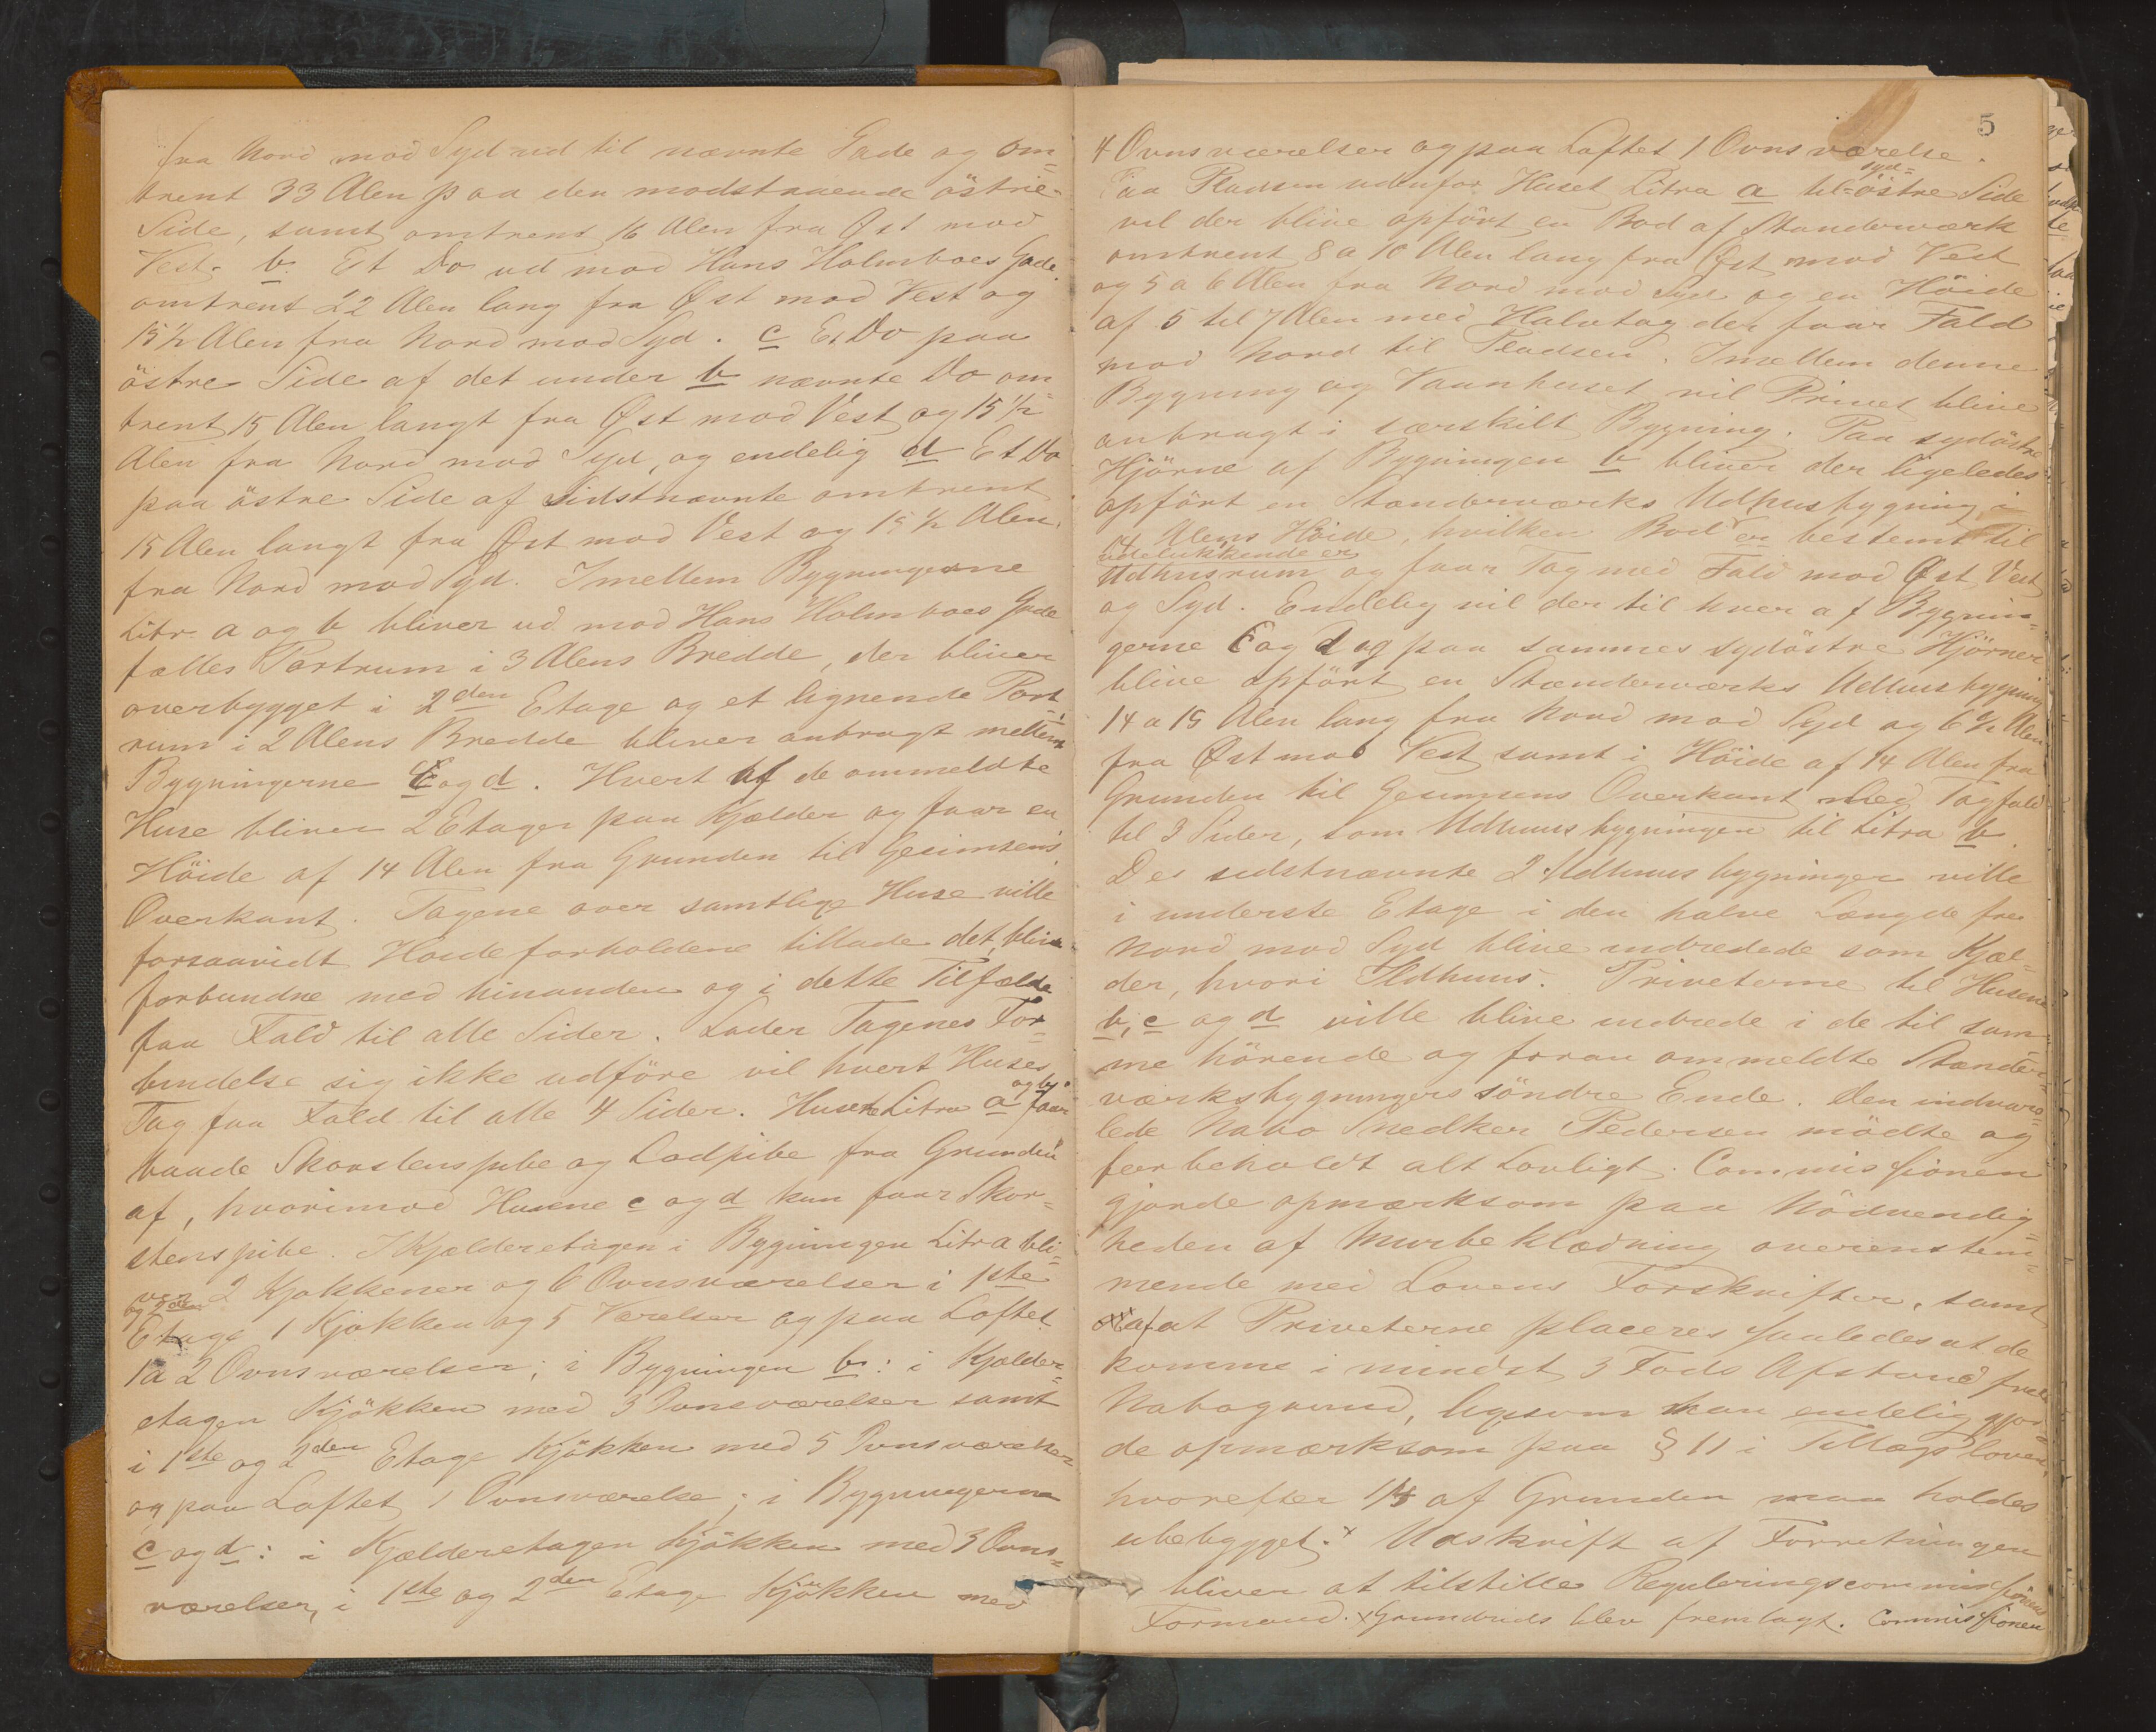 fra Nord mod Syd ud til nævnte Gade og om=
trent 33 Alen paa den modstaaende östre
Side, samt omtrent 16 Alen fra Øst mod
Vest. b. Et Do ud mod Hans Holmboes Gade
omtrent 22 Alen lang fra Øst mod Vest og
15 1/2 Alen fra Nord mod Syd. c Et Do paa
östre Side af det under b nævnte Do om
trent 15 Alen langt fra Øst mod Vest og 15 1/2
Alen fra Nord mod Syd, og endelig d Et Do
paa östre Side af sidstnævnte omtrent
15 Alen langt fra Øst mod Vest og 15 1/2 Alen
fra Nord mod Syd. Imellem Bygningerne
Litr. a og b bliver ud mod Hans Holmboes Gade
fælles Portrum i 3 Alens Bredde, der bliver
overbygget i 2den Etage og et lignende Port=
rum i 2 Alens Bredde bliver anbragt mellem
Bygningerne c og d. Hvert af de ommeldte
Huse bliver 2 Etager paa Kjælder og faar en
Höide af 14 Alen fra Grunden til Gesimsens
Overkant. Tagene over samtlige Huse ville
forsaavidt Höideforholdene tillade det, blive
forbundne med hinanden og i dette Tilfælde
faa Fald til alle Sider. Lader Tagenes For=
bindelse sig ikke udföre vil hvert Huses
Tag faa Fald til alle 4 Sider. Husene Litra a og b faar
baade Skorstenspibe og Lodpibe fra Grunden
af, hvorimod Husene c og d kun faar Skor=
stenspibe. I Kjælderetagen i Bygningen Litr a bli=
ver 2 Kjøkkener og 6 Ovnsværelser i 1ste
og 2den
Etage 1 Kjøkken og 5 Værelser og paa Loftet
1 a 2 Ovnsværelser; i Bygningen b: i Kjælder=
etagen Kjökken med 3 Ovnsværelser samt
i 1ste og 2den Etage Kjökken med 5 Ovnsværelser
og paa Loftet 1 Ovnsværelse; i Bygningerne
c og d: i Kjælderetagen Kjökken med 3 Ovns=
værelser, i 1ste og 2den Etage Kjökken med
5
4 Ovnsværelser og paa Loftet 1 Ovnsværelse.
syd=
Paa Pladsen udenfor Huset Litra a til östre Side
vil der blive opfört en Bod af Standerværk
omtrent 8 a 10 Alen lang fra Øst mod Vest
og 5 a 6 Alen fra Nord mod Syd og en Höide
af 5 til 7 Alen med Halvtag der faar Fald
mod Nord til Pladsen. Imellem denne
Bygning og Vaanhuset vil Privet blive
anbragt i særskilt Bygning. Paa sydöstre
Hjörne af Bygningen b bliver der ligeledes
opfört en Standerværks Udhusbygning i
Alens Höide, hvilken Bod er bestemt til
udelukkende er
Udhusrum og faar Tag med Fald mod Øst, Vest
og Syd. Endelig vil der til hver af Bygnin=
gerne c og d og paa sammes sydöstre Hjörner
blive opfört en Stænderværks Udhusbygning
14 a 15 Alen lang fra Nord mod Syd og 6 1/2 Alen
fra Øst mod Vest samt i Höide af 14 Alen fra
Grunden til Gesimsens Overkant med Tagfald
til 3 Sider, som Udhuusbygningen til Litra b.
De sidstnævnte 2 Udhuusbygninger ville
i underste Etage i den halve Længde fra
Nord mod Syd blive indredede som Kjæl=
der, hvori Ildhuus. Priveterne til Husene
b, c og d ville blive indrede i de til sam=
me hörende og foran ommeldte Stander=
værksbygningers söndre Ende. Den indvars=
lede Nabo Snedker Pedersen mödte og
forbeholdt alt Lovligt. Commissionen
gjorde opmærksom paa Nödvendig=
heden af Murbeklædning overenstem=
mende med Lovens Forskrifter, samt
at Priveterne placeres saaledes at de
komme i mindst 3 Fods Afstand fra
Nabogrund, ligesom man endelig gjor=
de opmærksom paa § 11 i Tillægsloven,
hvorefter 1/4 af Grunden maa holdes
ubebygget.x Udskrift af Forretningen
bliver at tilstille Reguleringscommissionens
Formand. x Grundrids blev fremlagt. Commissionen